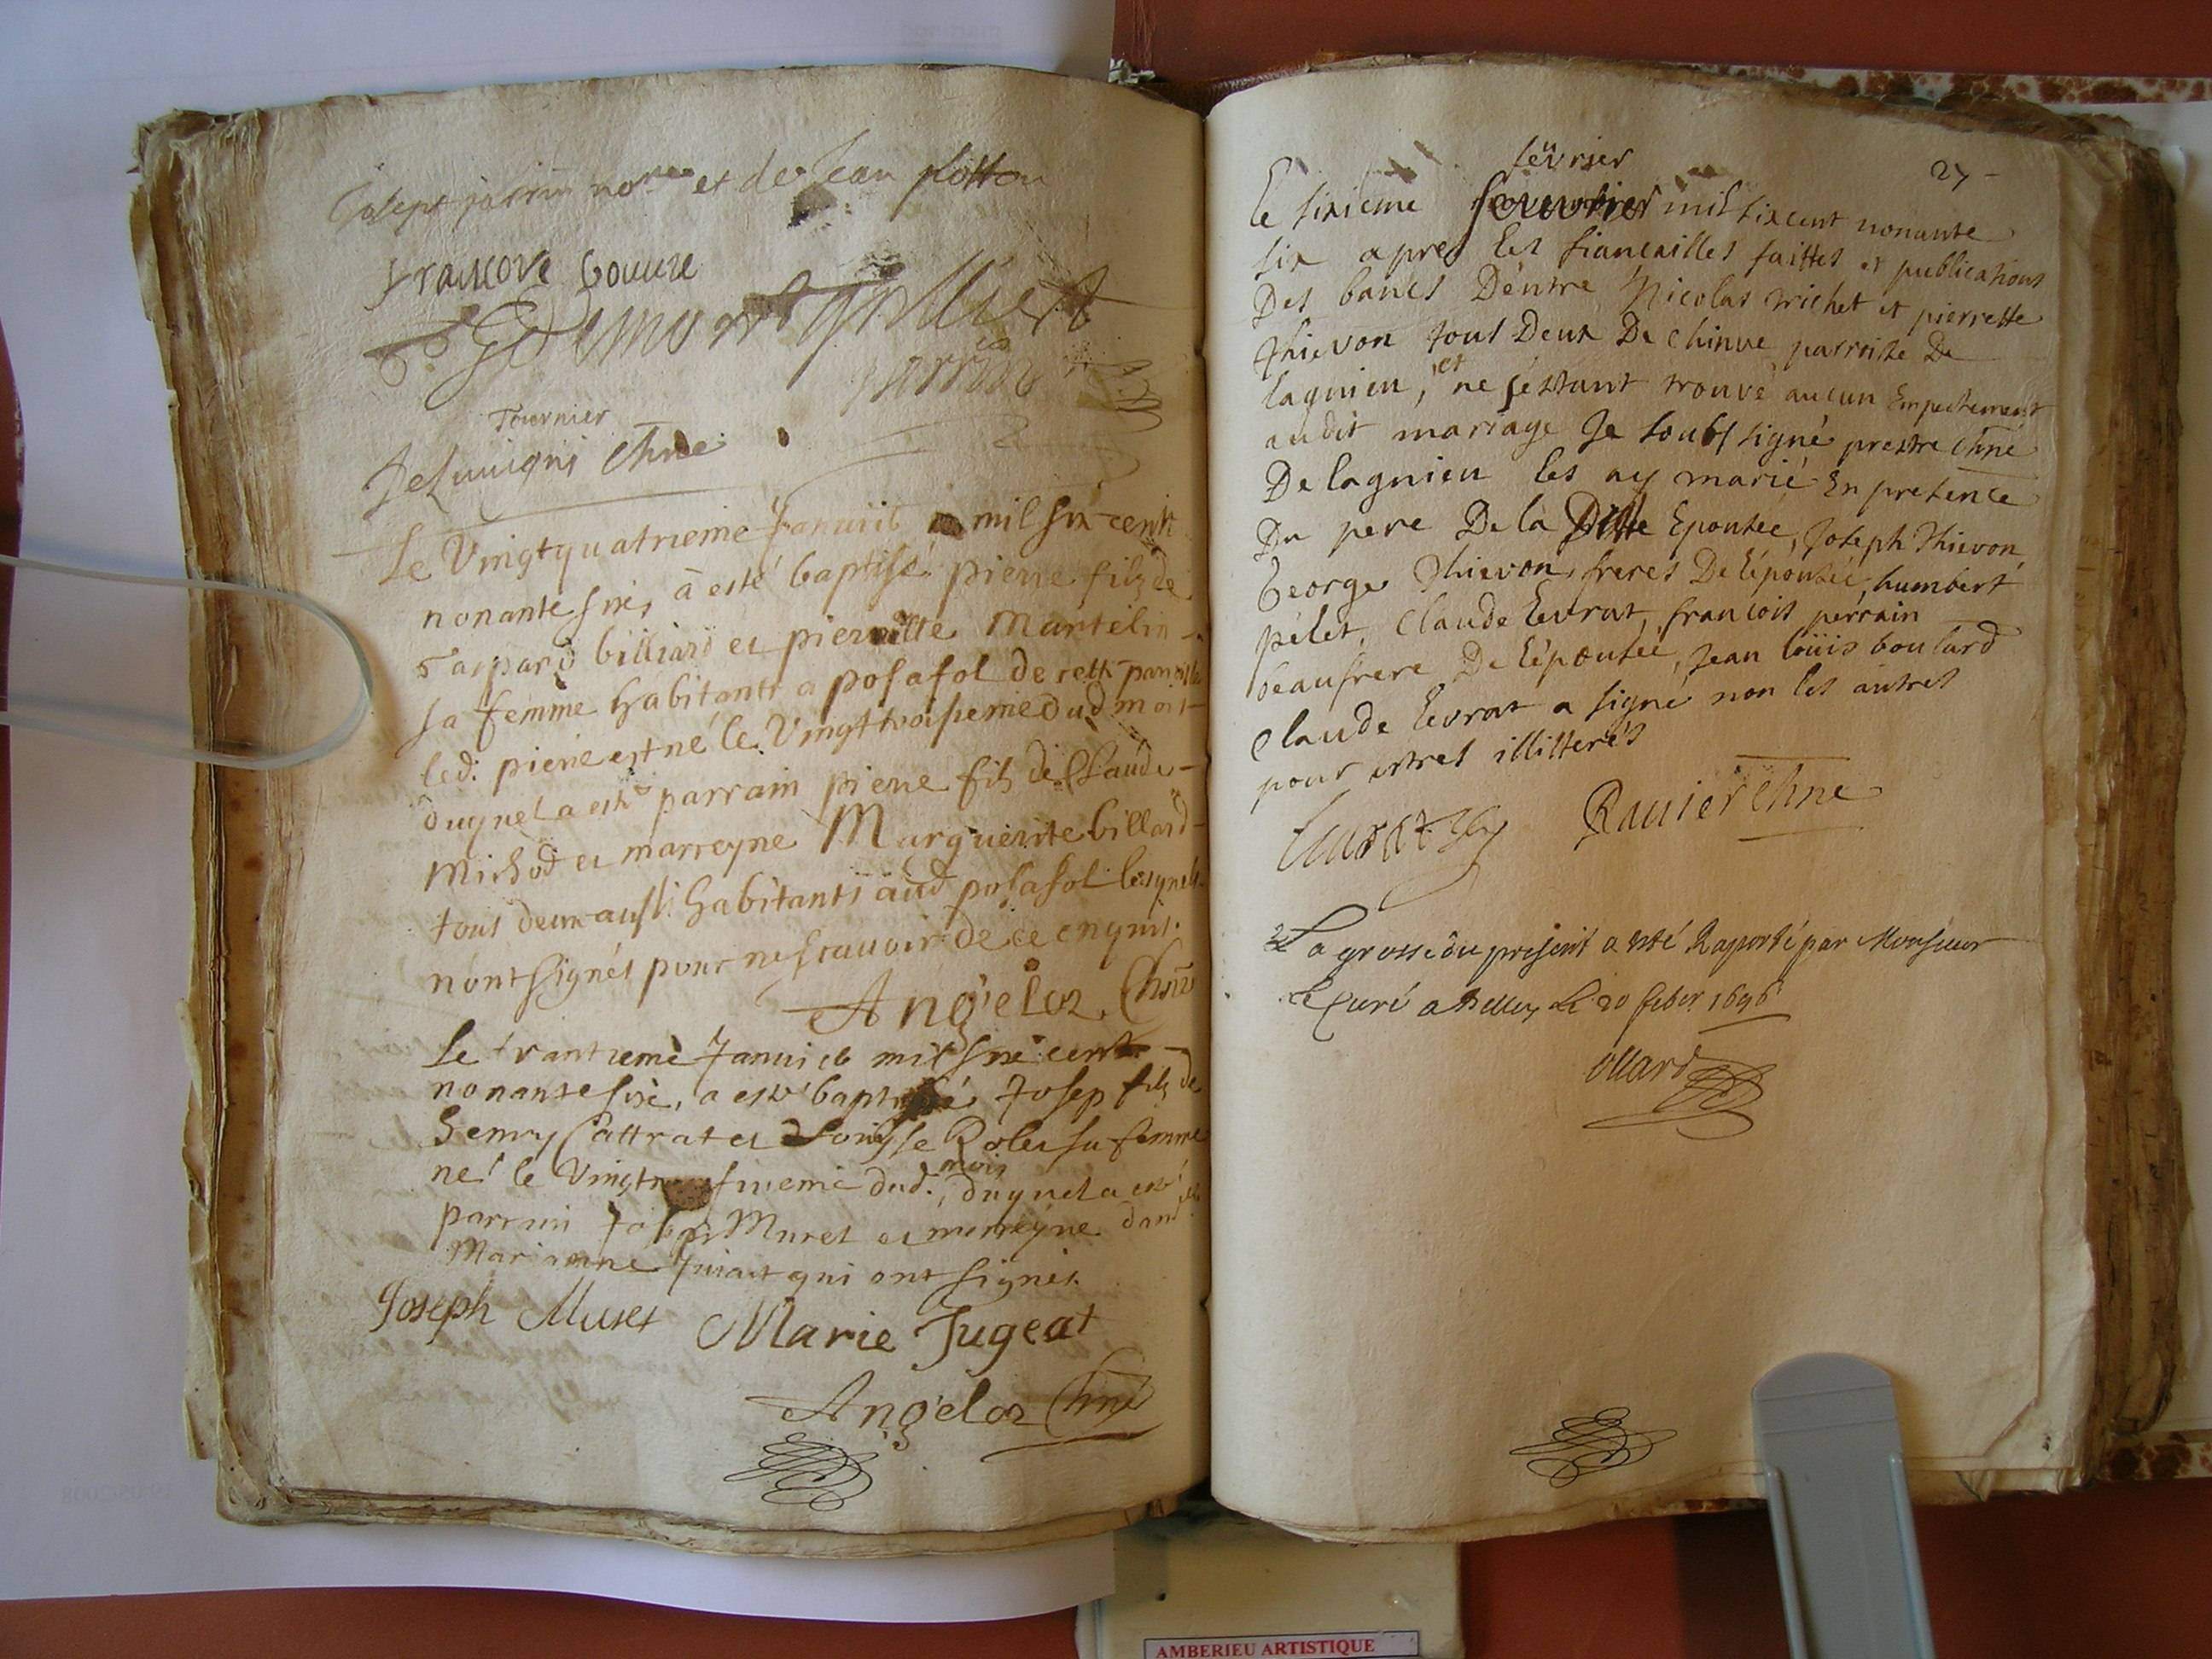 et de Jean plotton
francois bouure
perrin
Tournier
Chne
Le Vingt quatrieme Januier mil six cent
nonante six, a esté baptisé pierre filz de
Gaspard billiard et pierrette Martelin
sa femme habitants a posafol de cette parroisse
led. pierre est né le Vingt troisieme dud mois
duquel a esté parrain pierre filz de Claude
Michod et marreyne Marguerite billard
tous deux aussi habitants aud posafol lesquels
n'ont signés pour ne scauoir de ce enquis.
Angelot Chne
Le trantieme Januier mil six cent
nonante sixe, a esté baptisé Josep filz de
henry Cattrat et Louyse Rolet sa femme
né le Vingt sixieme dud. mois, duquel a esté
parrain Josep Muret et marreyne dam
Marianne qui ont signés.
Joseph Muret Marie Jugeat
Angelot Chne
27
feürier
Le sixieme mil sixcent nonante
six apres les fiancailles faittes et publications
Des bancs D'entre Nicolas trichet et pierrette
thievon tous Deux De Chinve parroisse De
lagnieu, et ne s'estant trouvé aucun Empechement
audit mariage Je soubsigné prestre Chne
De lagnieu les ay marié En presence
Du pere De la Ditte Epousée, Joseph Thievon
George Thievon freres De l'épousée, humbert
pelet, Claude Levrat, francois perrain
beaufrere De l'épousée, Jean loüis boulard
Claude Levrat a signé non les autres
pour estres illitterés
Leurat Rauier Chne
La grosse du present a esté Raporté par Monsieur
Le Curé a Belley Le 20 feber 1696
ollard
AMBERIEU ARTISTIQUE